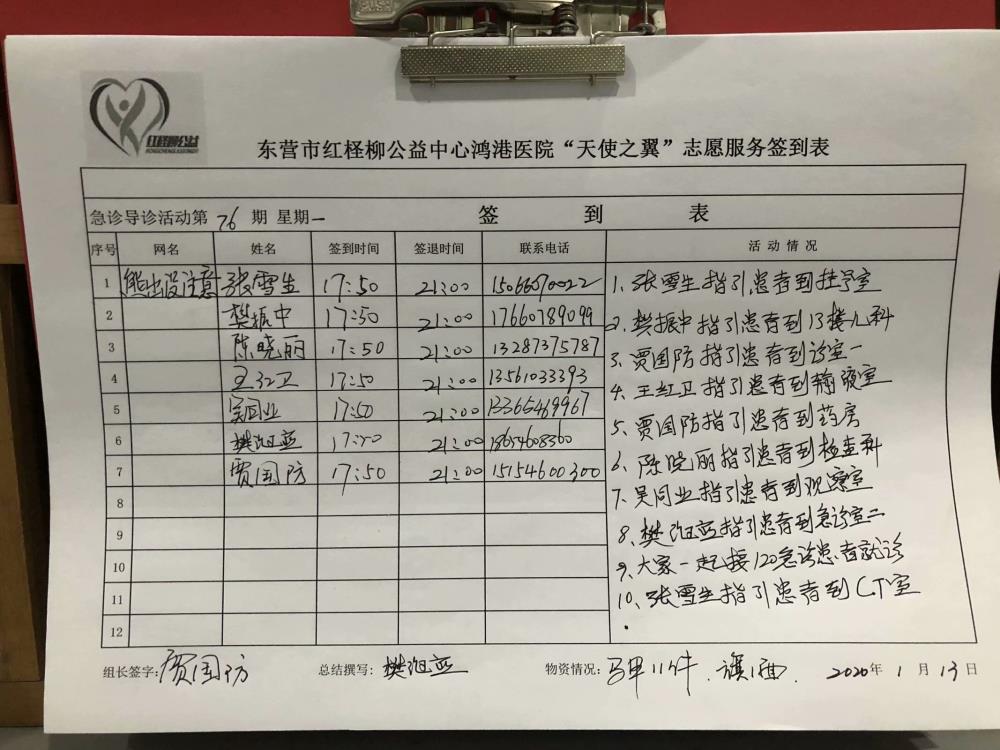 红柽柳公益
东营市红柽柳公益中心鸿港医院“天使之翼”志愿服务签到表
急诊导诊活动第 76 期 星期一 签 到 表
序号 网名 姓名 签到时间 签退时间 联系电话 活动情况
1 熊出没注意 张雪生 17:50 21:00 15066070022
2 樊振中 17:50 21:00 17660789099
3 陈晓丽 17:50 21:00 13287375787
4 王红卫 17:50 21:00 13561033393
5 吴同业 17:50 21:00 13365469967
6 樊 17:50 21:00
7 贾国防 17:50 21:00 15154600300
8
9
10
11
12
1、张雪生指引患者到挂号室
2、樊振中指引患者到13楼儿科
3、贾国防指引患者到诊室一
4、王红卫指引患者到静液室
5、贾国防指引患者到药房
6、陈晓丽指引患者到检查科
7、吴同业指引患者到观察室
8、樊 指引患者到急诊室二
9、大家一起接120急诊患者就诊
10、张雪生指引患者到CT室
组长签字:贾国防 总结撰写:樊 物资情况: 11件、旗1面. 2020年 1 月 13 日